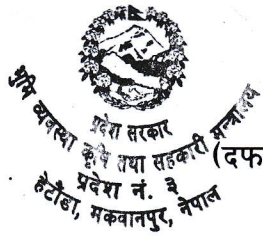 प्रदेश सरकार
भूमि व्यवस्था कृषि तथा सहकारी मन्त्रालय
(दफ
प्रदेश नं. ३
हेटौंडा, मकवानपुर, नेपाल